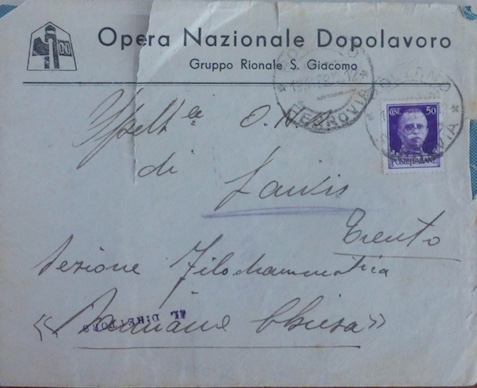 Opera Nazionale Dopolavoro
Gruppo Rionale S. Giacomo
FERROVIA
CENT. 50
POSTE ITALIANE
Spett. le O.N.D.
di Lavis
Trento
Sezione Filodrammatica
« Chiesa »
AL DIRETTORE